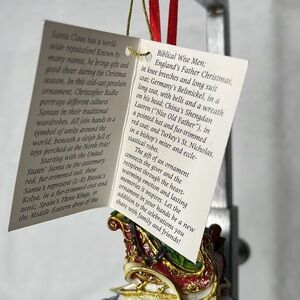 Santa Claus has a world-
wide reputation! Known by
many names, he brings gifts and
good cheer during the Christmas
season. In this cold-cast porcelain
ornament, Christopher Radko
portrays different cultures'
Santas in their traditional
wardrobes. All join hands in a
symbol of unity around the
world, beneath a sleigh full of
toys perched at the North Pole!
Starting with the United
States' Santa in the customary
red, fur-trimmed suit, these
Santa's represent (l-R) Russia's
Kolya, in a fur-trimmed coat and
tunic, Spain's Three Kings, in
the Middle Eastern dress of the
Biblical Wise Men;
England's Father Christmas,
in knee breeches and long suit
coat, Germany's Belsnickel, in a
long coat, with bells and a wreath
on his head; China's Shengdan
Laoren ("Nice Old Father"), in
a pointed hat and fur-trimmed
red coat, and Turkey's St. Nicholas,
in a bishop's miter and eccle-
siastical robes.
The gift of an ornament
connects the giver and the
recipient through the heart-
warming emotion and lasting
memories it inspires. Let the
ornament in your hands be a new
addition to the celebrations you
share with family and friends!